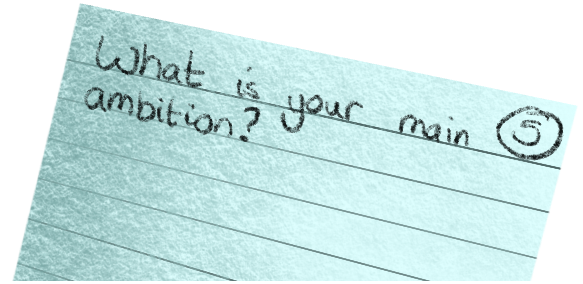 What is your main 5
ambition?